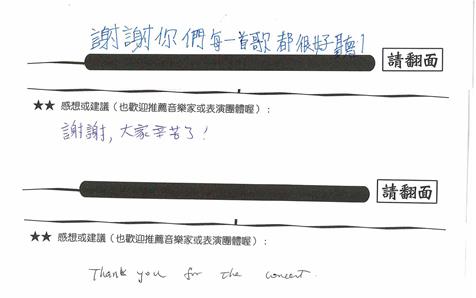 謝謝你們每一首歌都很好聽!
請翻面
★★ 感想或建議(也歡迎推薦音樂家或表演團體喔):
謝謝,大家辛苦了!
請翻面
★★ 感想或建議(也歡迎推薦音樂家或表演團體喔):
Thank you for the concert.